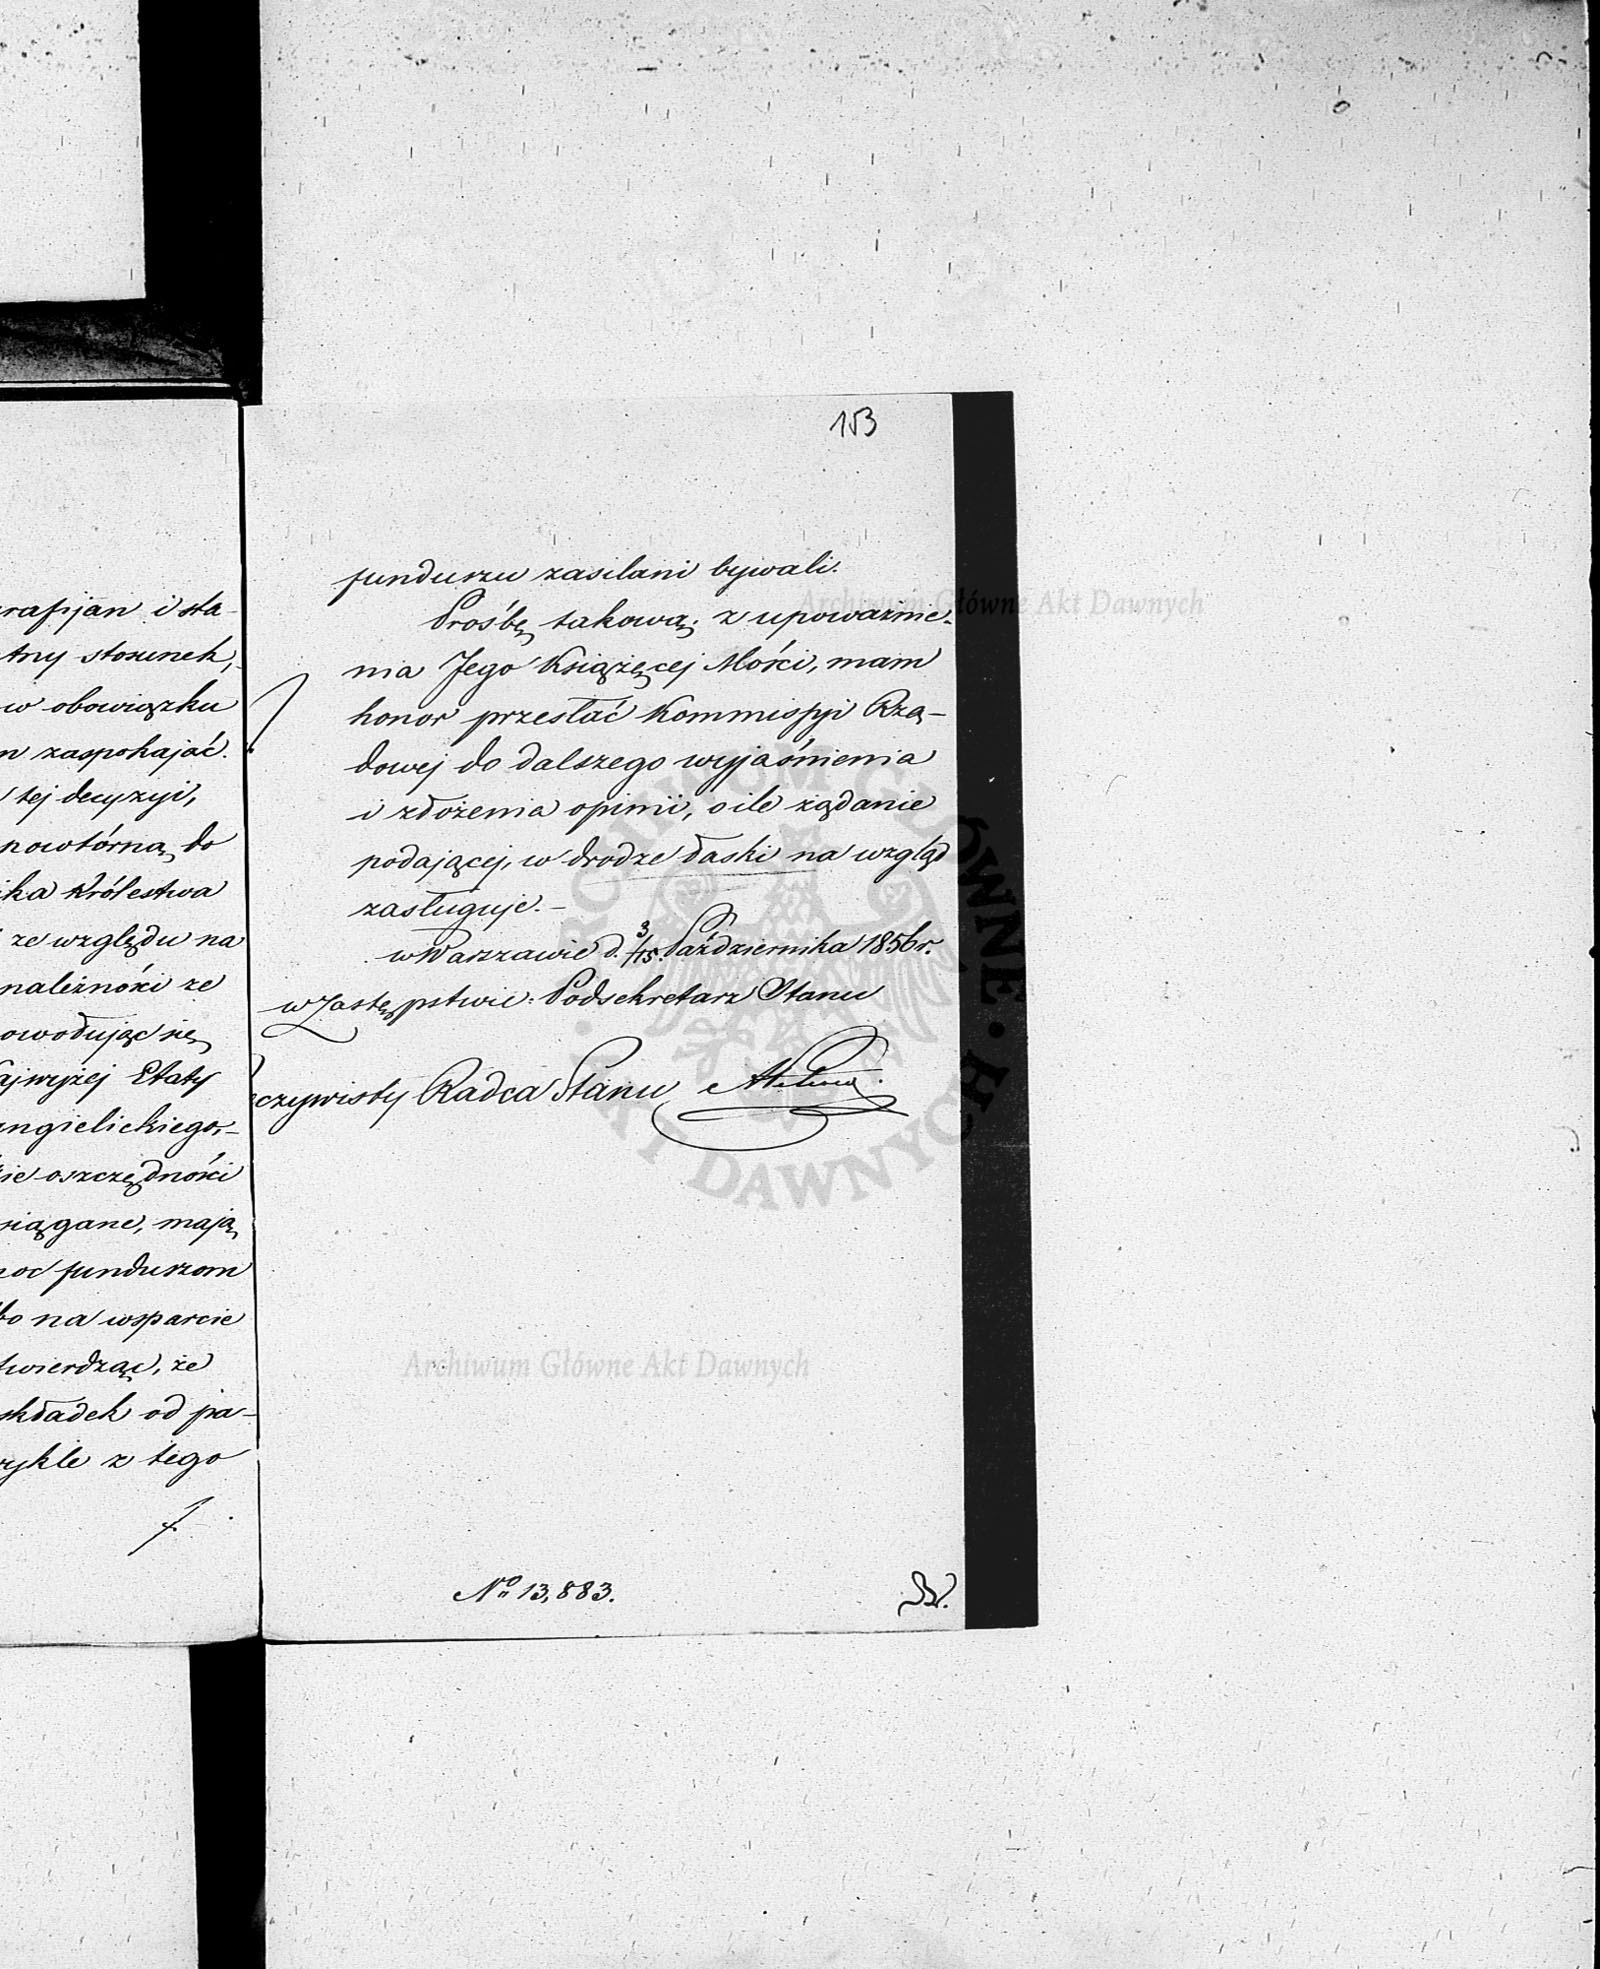 rafijan i sta-
tny stosunek,
w obowiązku
m zaspokajać.
tej decyzyi,
powtórną do
ika Królestwa
ze względu na
należności ze
owodując się
ajwyżej Etaty
angielickiego,-
ie oszczędności
siągane, mają
moc funduszom
bo na wsparcie
twierdząc, że
składek od pa-
wykle z tego
f.
153
funduszu zasilani bywali.
Prośbę takową, z upoważnie-
nia Jego Książęcej Mości, mam
honor przesłać Kommissyi Rzą-
dowej do dalszego wyjaśnienia
i złożenia opinii, o ile żądanie
podającej, w drodze łaski na wzgląd
zasługuje.-
w Warszawie d. 3/15. Października 1856 r.
w Zastępstwie: Podsekretarz Stanu
czywisty Radca Stanu
No 13,883.
Archiwum Główne Akt Dawnych
ARCHIWUM GŁÓWNE AKT DAWNYCH
Archiwum Główne Akt Dawnych